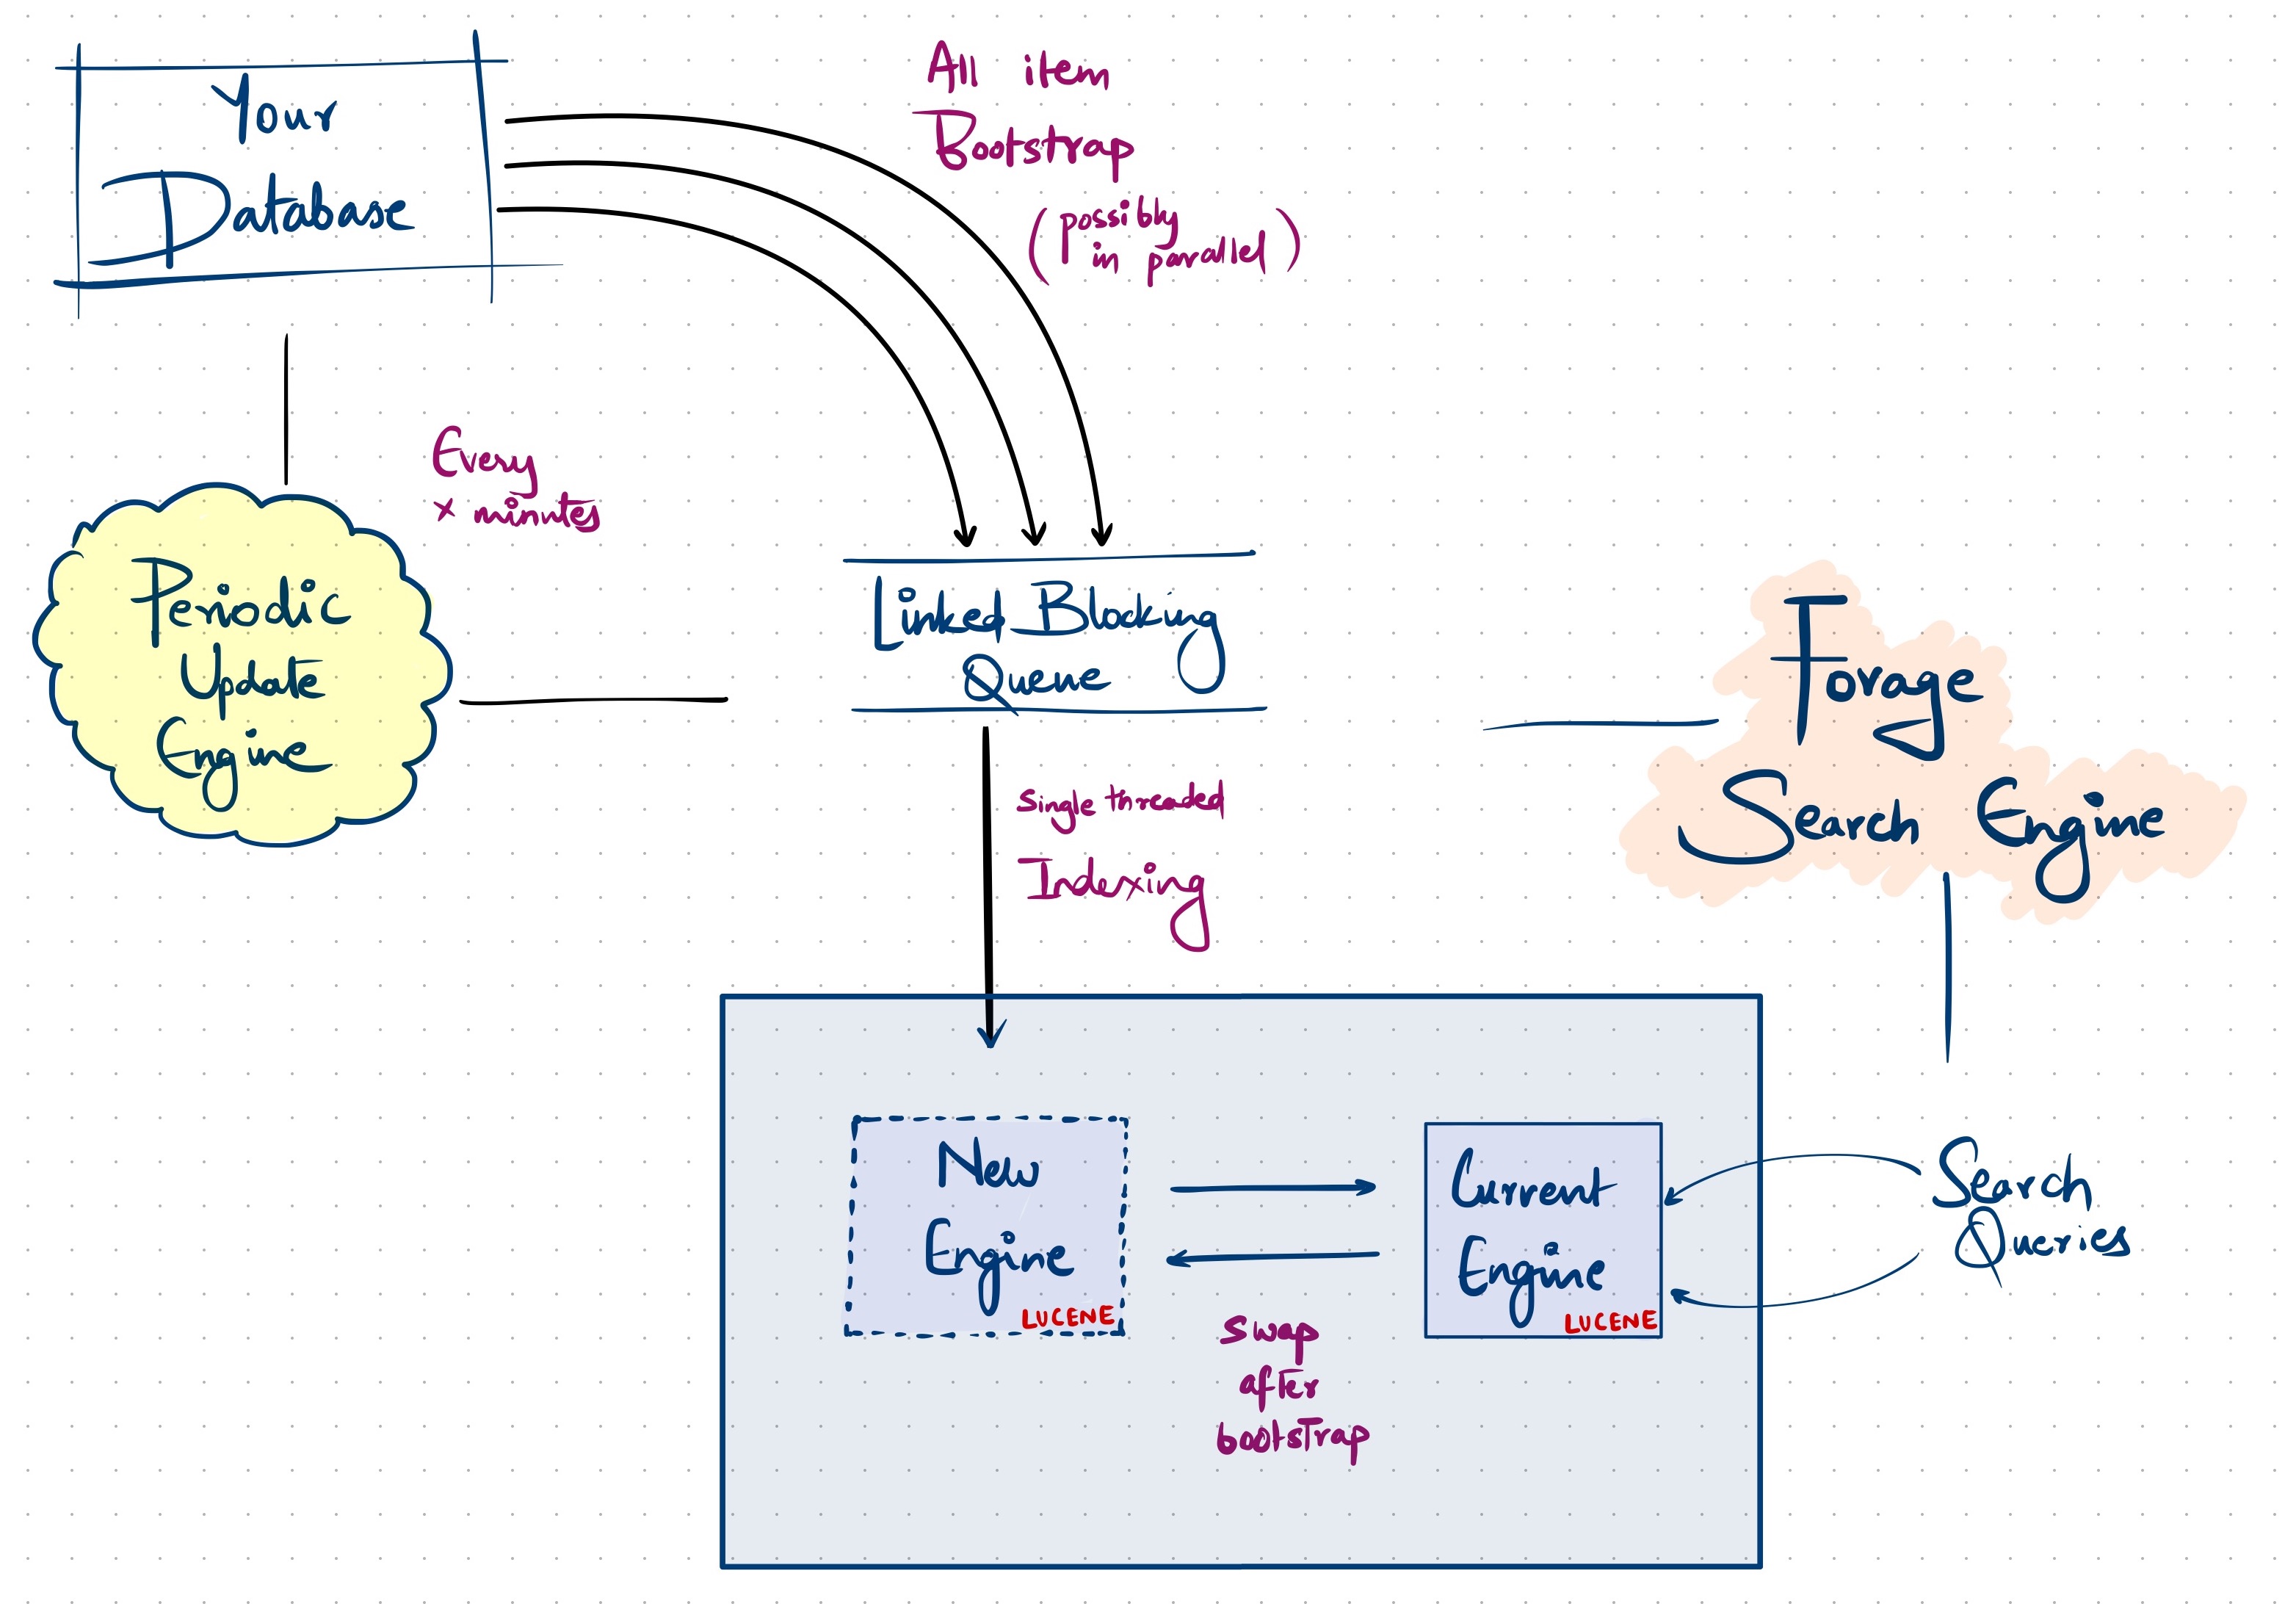 Your
Database
All item
Bootstrap
(possibly
in parallel)
Every
x minutes
Periodic
Update
Engine
Linked Blocking
Queue
Forage
Search Engine
Single threaded
Indexing
New
Engine
LUCENE
Current
Engine
LUCENE
Swap
after
bootstrap
Search
Queries